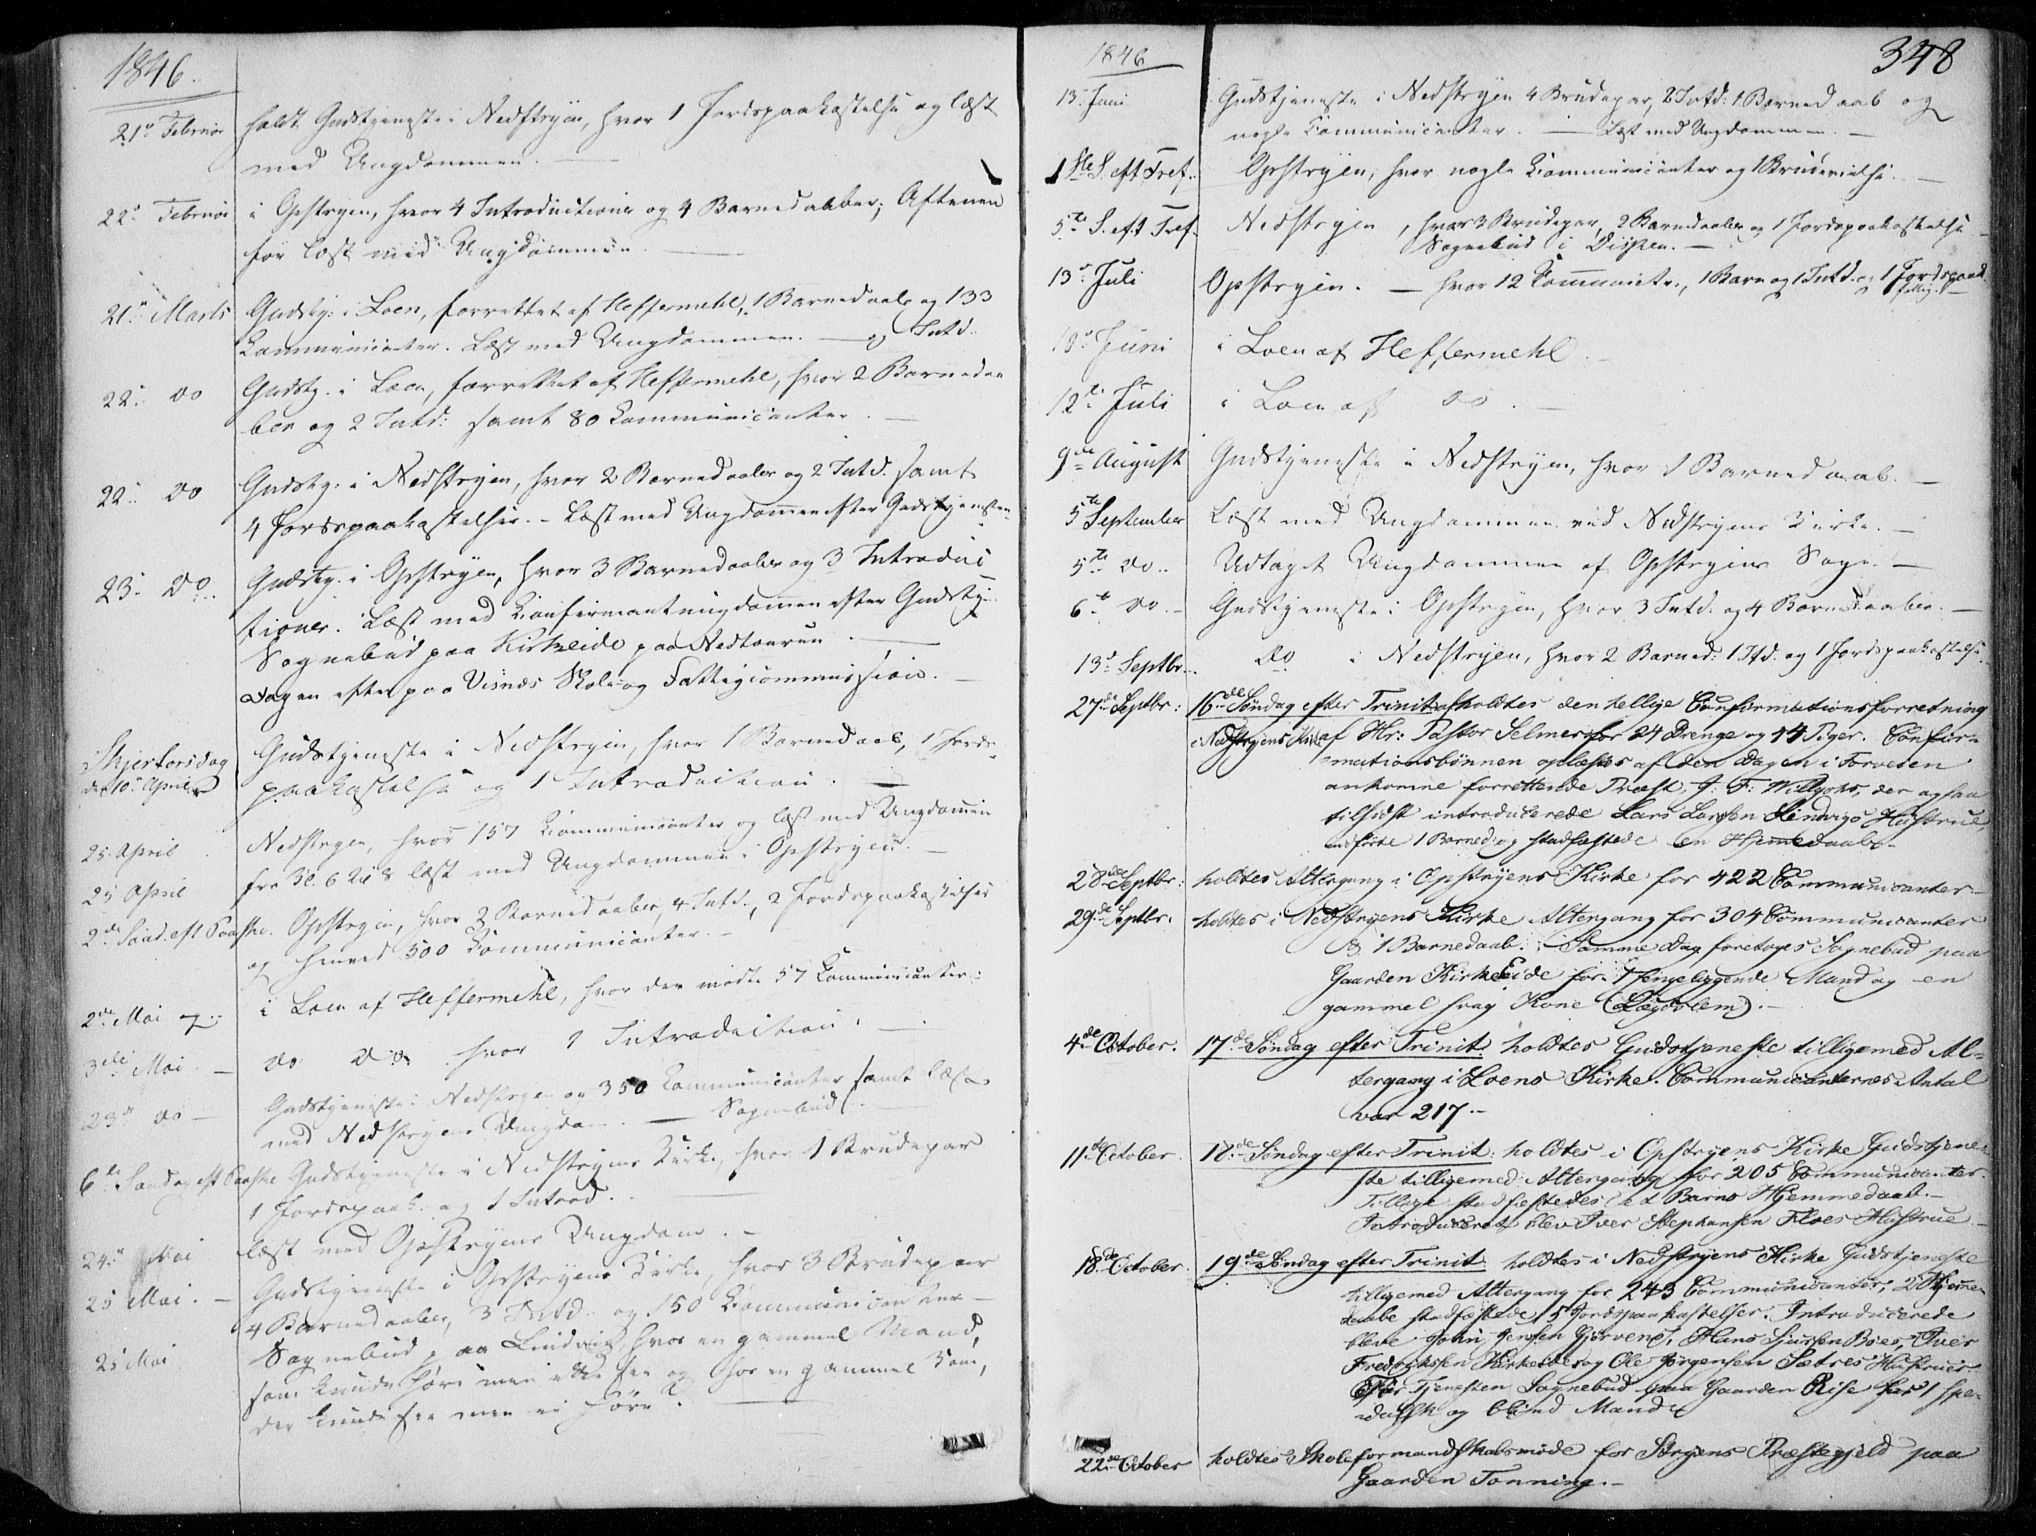 1846.
21de Februar holdt Gudstjeneste i Nedstryen, hvor 1 Jordspaakastelse og læst
med Ungdommen. —
22de Februar i Opstryen, hvor 4 Introductioner og 4 Barnedaaber; Aftenen
før læst med Ungdommen —
21de Marts Gudstj: i Loen, forrettet af Heffermehl, 1 Barnedaab og 133
Kommunicanter. Læst med Ungdommen. — og Intd.
22de do Gudstj. i Loen, forrettet af Heffermehl, hvor 2 Barnedaa
ber og 2 Intd: samt 80 Kommunicanter. —
22de do Gudstj: i Nedstryen, hvor 2 Barnedaaber og 2 Intd. samt
4 Jordspaakastelser. – Læst med Ungdommen efter Gudstjenesten
23de do.. Gudstj. i Opstryen, hvor 3 Barnedaaber og 3 Introduc
tioner. Læst med Confirmantungdommen efter Gudstj:
Sognebud paa Kirkeide paa Nedtouren. —
Dagen efter paa Visnæs Skole og Fattigcommission. —
Skjertorsdag Gudstjeneste i Nedstryen, hvor 1 Barnedaab, 1 Jords
d. 10de April paakastelse og 1 Introduction. —
25 April Nedstryen, hvor 157 Kommunicanter og læst med Ungdommen
25 April fra Kl. 6 til 8 læst med Ungdommen i Opstryen. —
2de Sønd. eft Paaske. Opstryen, hvor 2 Barnedaaber, 4 Intd., 2 Jordspaakastelser
og henved 500 Kommunicanter. –
2den Mai i Loen af Heffermehl, hvor der mødte 57 Kommunicanter.
3die Mai. – do do hvor 1 Introduction. —
23de do – Gudstjeneste i Nedstryen og 350 Kommunicanter samt læst
med Nedstryens Ungdom. — Sognebud. —
6te Søndag eft Paaske Gudstjeneste i Nedstryens Kirke, hvor 1 Brudepar
1 Jordspaak. og 1 Introd. .
24de Mai læst med Opstryens Ungdom. –
25 Mai. – Gudstjeneste i Opstryens Kirke, hvor 3 Brudepar
4 Barnedaaber, 3 Intd. og 150 Kommunicanter –
25 Mai Sognebud paa Lindvik, hvor en gammel Mand,
som kunde høre men ikke see og hos en gammel Kone,
der kunde see men ei høre. —
1846
348
13de Juni Gudstjeneste i Nedstryen 4 Brudepar, 2 Intd: 1 Barnedaab og
nogle Communicanter. — Læst med Ungdommen. –
1ste S. eft Tref. Opstryen, hvor nogle Kommunicanter og 1 Brudevielse. —
5te S. eft Tref. Nedstryen, hvor 3 Brudepar, 2 Barnedaaber og 1 Jordspaakastelse
Sognebud i —
13de Juli Opstryen. — hvor 12 Communictr., 1 Barn og 1 Intd. og 1 Jordspaak
Juni i Loen af Heffermehl. —
12te Juli i Loen af do. —
9de August Gudstjeneste i Nedstryn, hvor 1 Barnedaab. —
5te September Læst med Ungdommen ved Nedstryens Kirke. —
5te do.. Udtaget Ungdommen af Opstryens Sogn. —
6te do. – Gudstjeneste i Opstryen, hvor 3 Intd. og 4 Barnedaaber. —
13de Septbr. do i Nedstryen, hvor 2 Barned: 1 Itd. og 1 Jordspaakastelse
27de Septbr: 16de Søndag efter Trinit. afholdtes den hellige Confirmationsforretning
i Nedstryens Kirke af Hr: Pastor Selmer for 24 Drenge og 14 Piger. Confir=
mationsbønnen oplæstes af den Dagen i Forveien
ankomne forrettende Præst, J: F: Willgohs, der ogsaa
tilsidst introducerede Lars Larsen Hustrue,
udførte 1 Barned: og stadfæstede en Hjemedaab. –
28de Septbr: holdtes Altergang i Opstryens Kirke for 422 Communicanter –
29de Septbr. holdtes i Nedstryens Kirke Altergang for 304 Communicanter
& 1 Barnedaab. Samme Dag foretoges Sognebud paa
Gaarden KirkeEide for 1 sengeliggende Mand og en
gammel svag Kone (Lægdslem). –
4de October. 17de Søndag efter Trinit. holdtes Gudstjeneste tilligemed Al=
tergang i Loens Kirke. Communicanternes Antal
var 217. –
11de October. 18de Søndag efter Trinit: holdtes i Opstryens Kirke Gudstjene=
ste tilligemed Altergang for 205 Communicanter.
Tillige stadfæstedes et Barns Hjemmedaab. –
Introduceret blev Iver Stephansen Floes Hustrue –
18de October. 19de Søndag efter Trinit. holdtes i Nedstryens Kirke Gudstjeneste
tilligemed Altergang for 243 Communicanter, 2 Hjemme=
daabe stadfæstede, 5 Jordspaakastelser. Introducerede
bleve John Jensen Gjørvens, Hans Sjursen Bøes, Iver
Fredriksen Kirkeides og Ole Jørgensen Sætres Hustruer.
Før Tjenesten Sognebud paa Gaarden Rise for 1 spe=
dalsk og blind Mand.
22de October holdtes Skoleformandskabsmøde for Stryens Præstegjeld paa
Gaarden Tonning. –